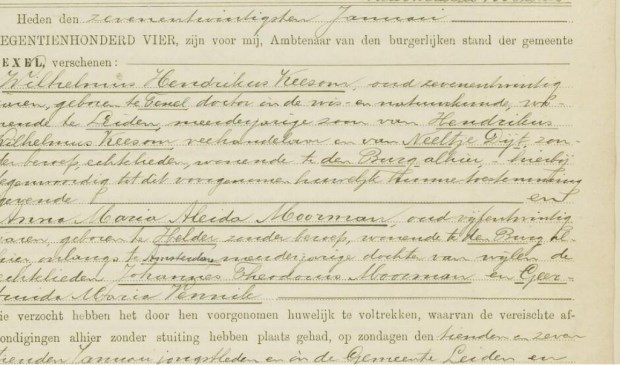 Heden den zevenentwintigsten Januari
EGENTIENHONDERD VIER, zijn voor mij, Ambtenaar van den burgerlijken stand der gemeente
EXEL, verschenen:
Wilhelmus Hendrikus Keesom, oud zevenentwintig
aren, geboren te Texel doctor in de wis- en natuurkunde, wo-
nende te Leiden, meerderjarige zoon van Hendrikus
Wilhelmus Keesom, veehandelaar en van Neeltje Dijt, zon-
der beroep, echtelieden, wonende te den Burg alhier, hierbij
tegenwoordig tot dit voorgenomen huwelijk hunne toestemming
gevende en
Anna Maria Aleida Moorman, oud vijfentwintig
aren, geboren te Helder zonder beroep, wonende te den Burg al-
hier, onlangs te Amsterdam meerderjarige dochter van wijlen de
echtelieden Johannes Theodorus Moorman en Geer-
truida Maria Vennik
ie verzocht hebben het door hen voorgenomen huwelijk te voltrekken, waarvan de vereischte af-
ondigingen alhier zonder stuiting hebben plaats gehad, op zondagen den tienden en zeven
tienden Januari jongstleden en in de Gemeente Leiden en